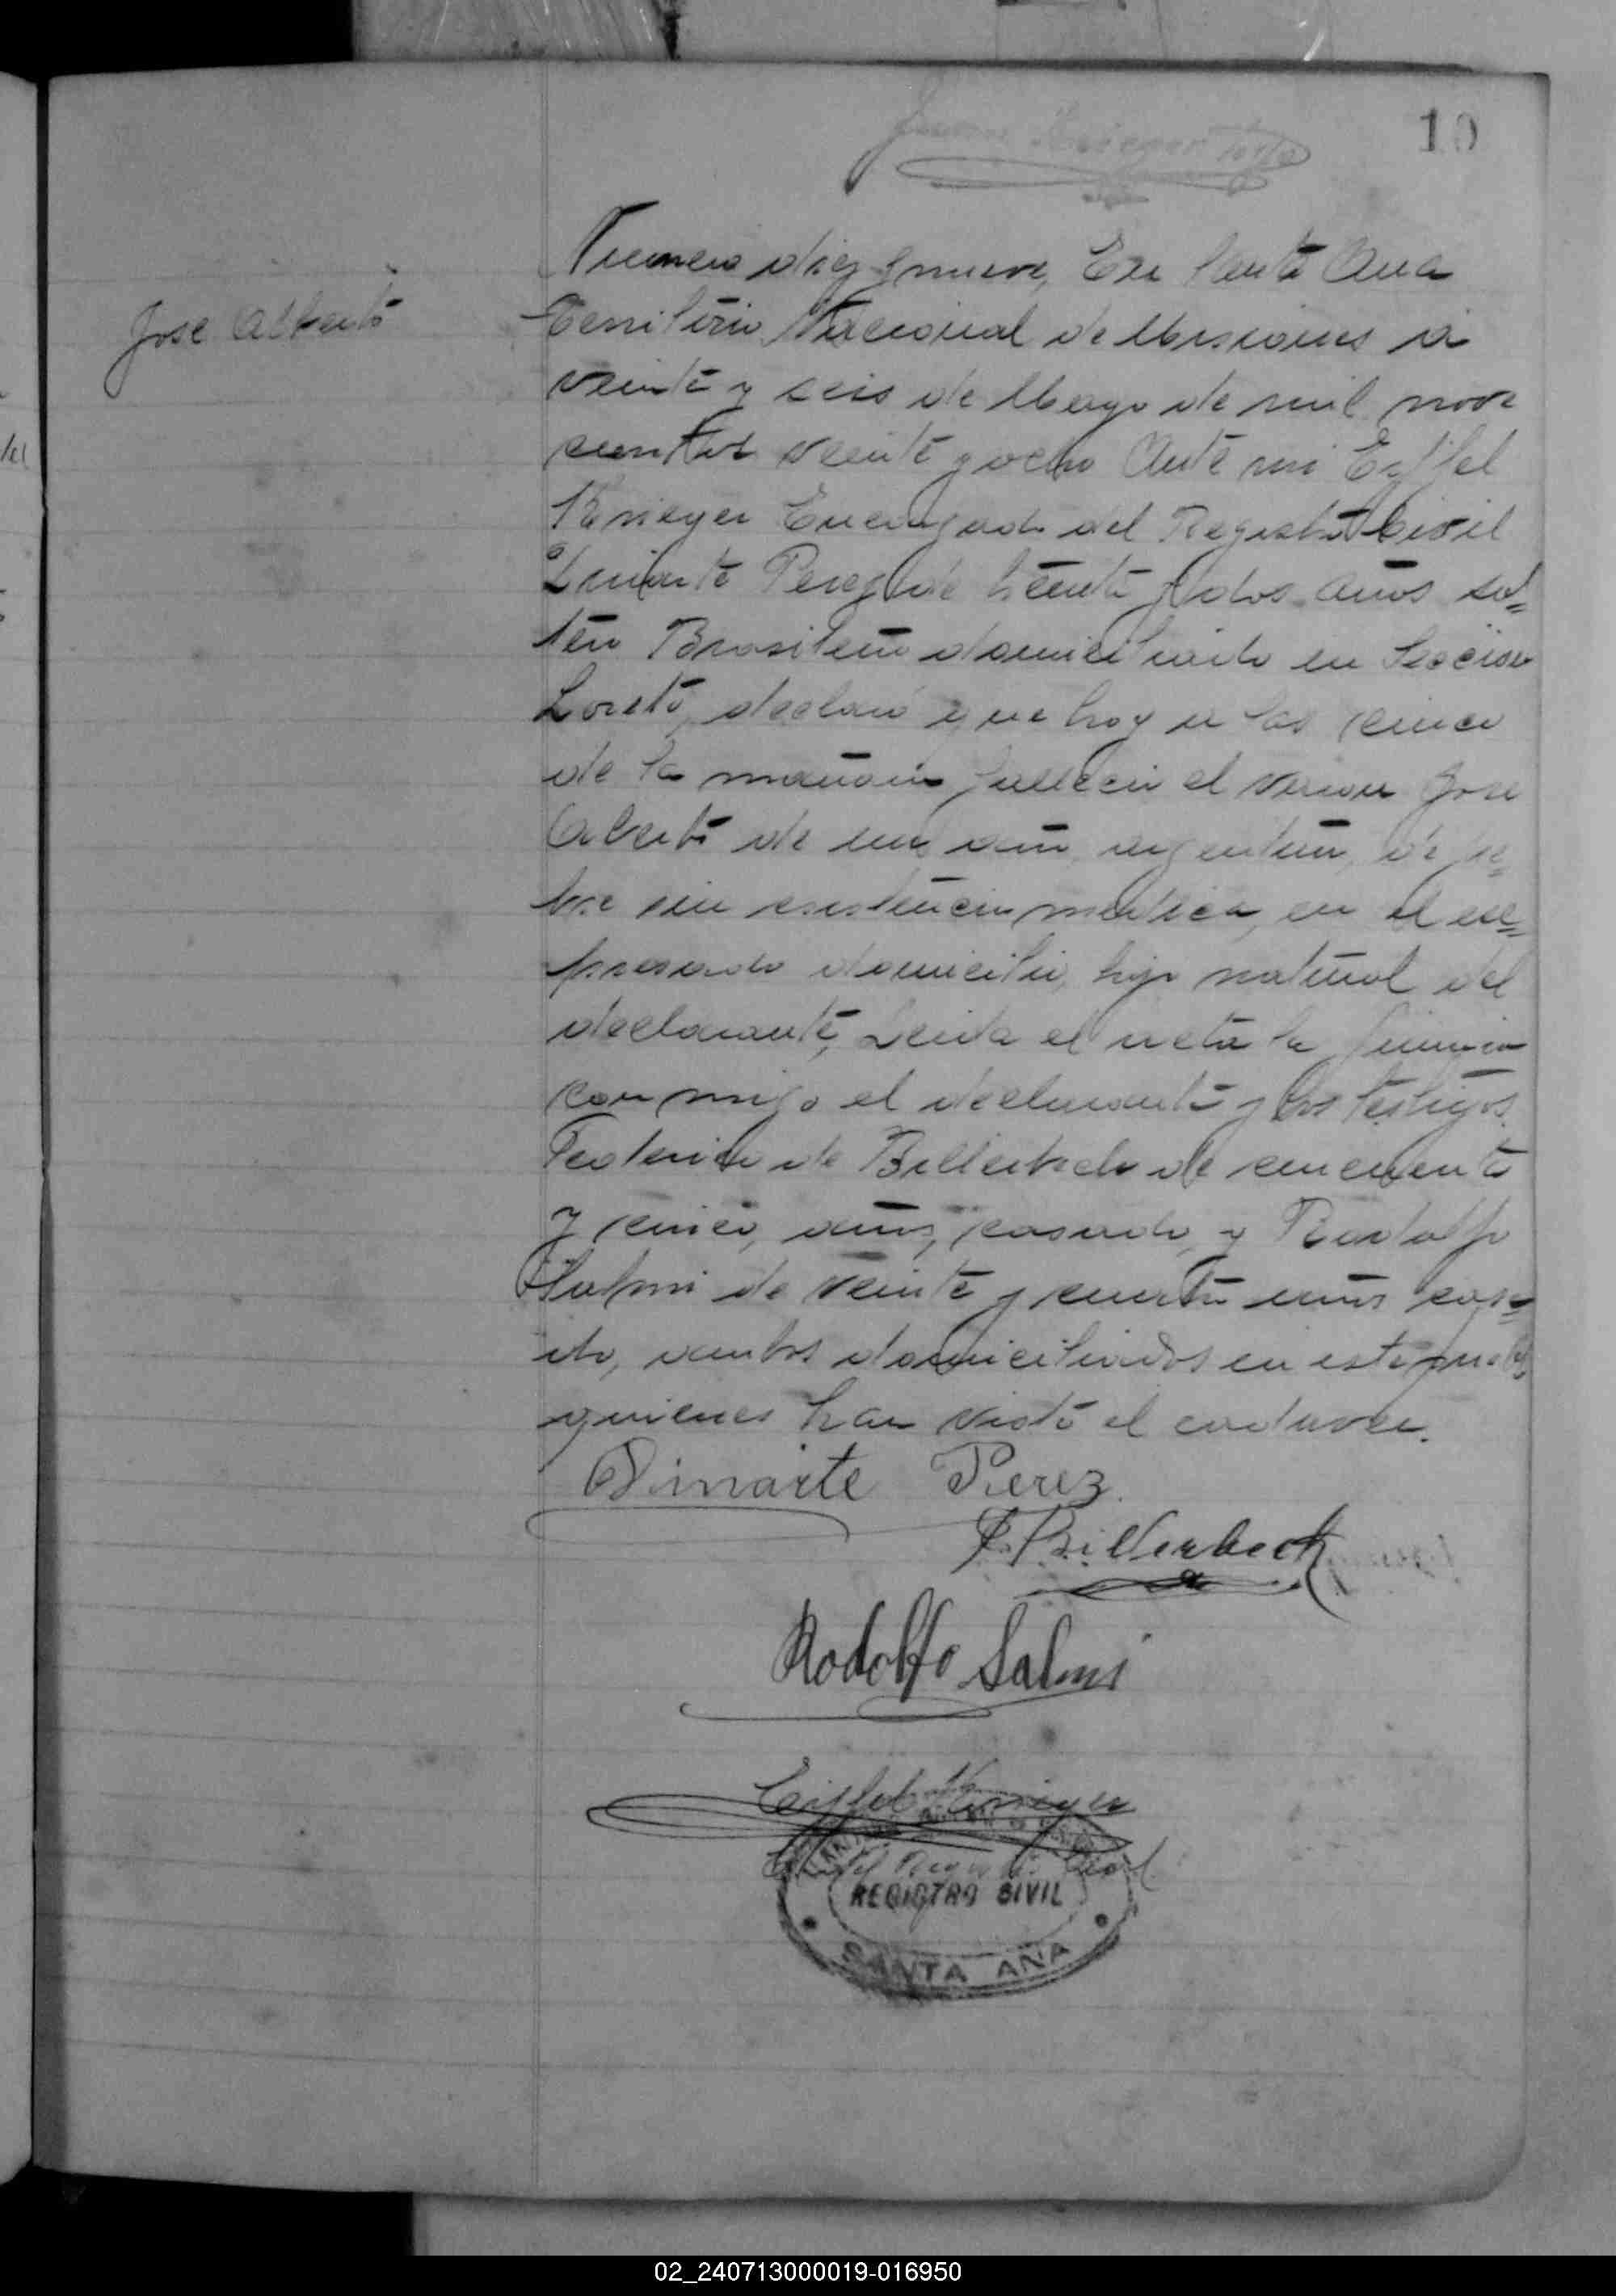 10
Jose Alberto
Numero diez y nueve, En Santa Ana
Territorio Nacional de Misiones a
veinte y seis de Mayo de mil nove
cientos veinte y ocho Ante mi Eiffel
Krieger Encargado del Registro Civil
Perez de treinta y dos años sol=
tero Brasilero domiciliado en Seccion
Loreto, declaró que hoy a las cinco
de la mañana fallecio el varon Jose
Alberto de un año, argentino, de fie=
bre sin asistencia medica, en el es=
presado domicilio, hijo natural del
declarante, Leida el acta la firmaron
conmigo el declarante y los testigos
Federico de Billerbeck de cincuenta
y cinco, años, casado, y Rodolfo
Salmi de veinte y cuatro años casa=
do, ambos domiciliados en este pueblo,
quienes han visto el cadaver.
Dinarte Perez.
F. Billerbeck
Rodolfo Salmi
Eiffel Krieger
Enc. del Registro Civil
REGISTRO CIVIL
SANTA ANA
02_240713000019-016950